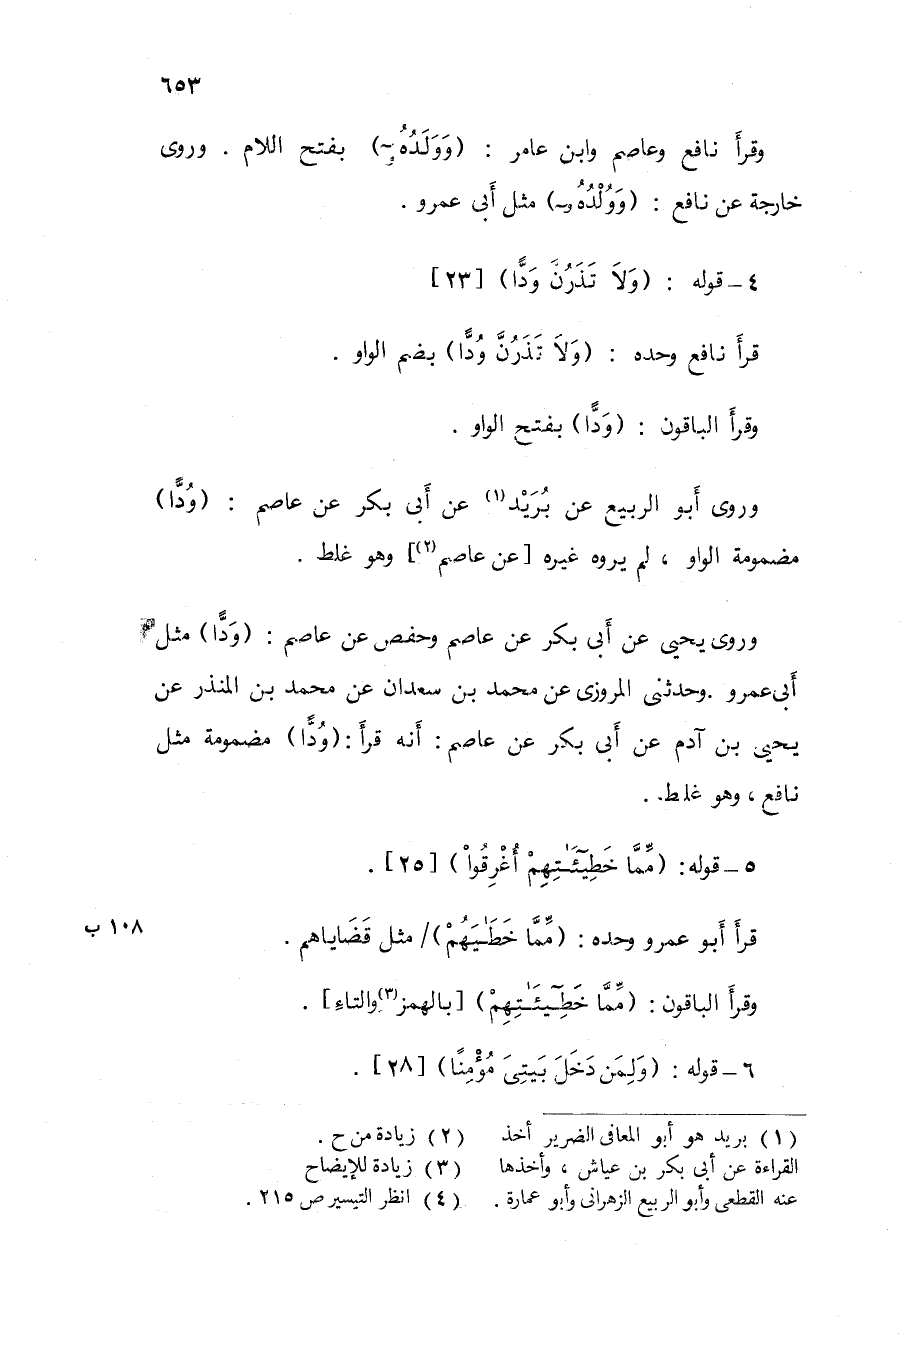 ٦٥٣
وقرأ نافع وعاصم وابن عامر : (وَوَلَدُهُۥٓ) بفتح اللام . وروى
خارجة عن نافع : (وَوُلْدُهُۥٓ) مثل أبى عمرو .
٤ – قوله : (وَلَا تَذَرُنَّ وَدًّا) [٢٣]
قرأ نافع وحده : (وَلَا تَذَرُنَّ وُدًّا) بضم الواو .
وقرأ الباقون : (وَدًّا) بفتح الواو .
وروى أبو الربيع عن بُرَيْد(١) عن أبى بكر عن عاصم : (وُدًّا)
مضمومة الواو ، لم يروه غيره [عن عاصم(٢)] وهو غلط .
وروى يحيى عن أبى بكر عن عاصم وحفص عن عاصم : (وَدًّا) مثل
أبى عمرو . وحدثنى المروزى عن محمد بن سعدان عن محمد بن المنذر عن
يحيى بن آدم عن أبى بكر عن عاصم : أنه قرأ : (وُدًّا) مضمومة مثل
نافع ، وهو غلط .
٥ – قوله : (مِّمَّا خَطِيٓـَٔـٰتِهِمْ أُغْرِقُواْ) [٢٥] .
قرأ أبو عمرو وحده : (مِّمَّا خَطَـٰيَـٰهُمْ)/ مثل قَضَاياهم . ١٠٨ ب
وقرأ الباقون : (مِّمَّا خَطِيٓـَٔـٰتِهِمْ) [بالهمز(٣) والتاء] .
٦ – قوله : (وَلِمَن دَخَلَ بَيتِىَ مُؤْمِنًا) [٢٨] .
(١) بريد هو أبو المعافى الضرير أخذ
القراءة عن أبى بكر بن عياش ، وأخذها
عنه القطعى وأبو الربيع الزهرانى وأبو عمارة .
(٢) زيادة من ح .
(٣) زيادة للإيضاح
(٤) انظر التيسير ص ٢١٥ .